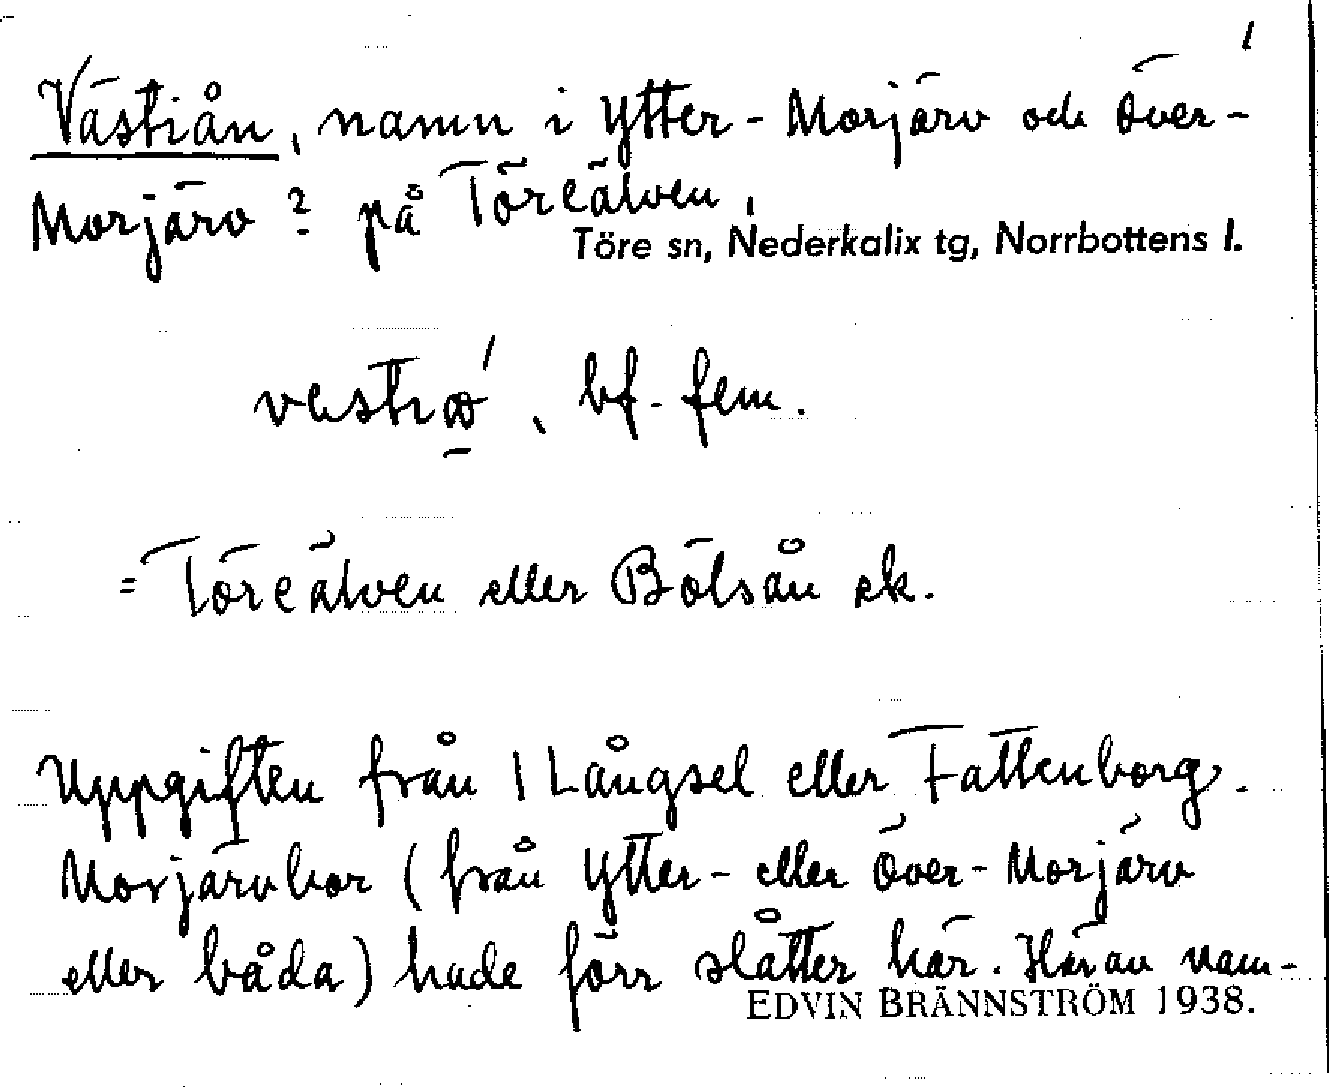 1
Västiån, namn i Ytter-Morjärv och Över-
Morjärv? på Töreälven,
Töre sn, Nederkalix tg, Norrbottens l.
bf. fem.
= Töreälven eller Bölsån ek.
Uppgiften från Långsel eller Fattenborg.
Morjärvbor (från Ytter- eller Över-Morjärv
eller båda) hade förr slåtter här. Härav nam-
EDVIN BRÄNNSTRÖM 1938.